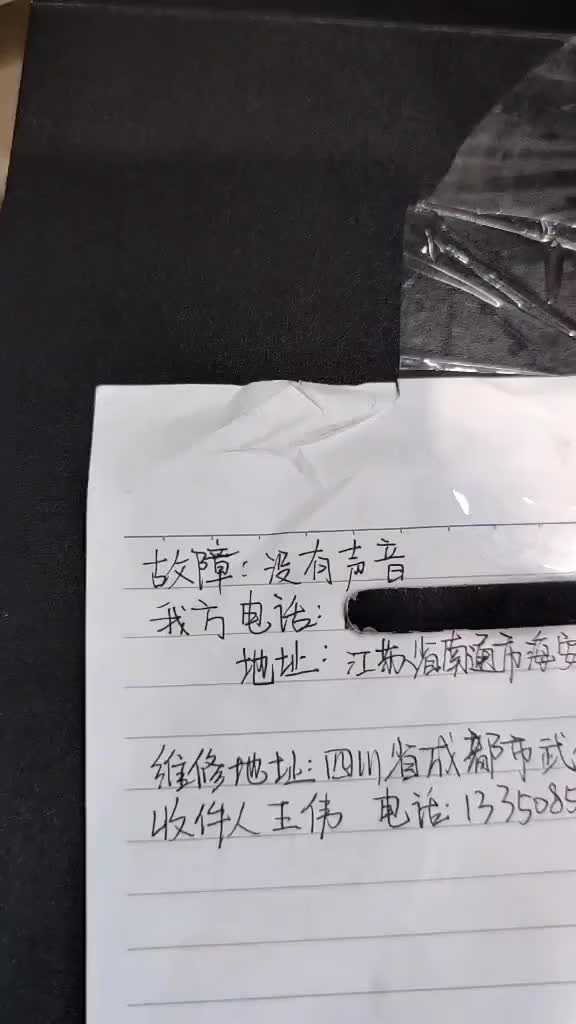 故障：没有声音
我方电话：
地址：江苏省南通市海安
维修地址：四川省成都市武
收件人王伟 电话：1335085